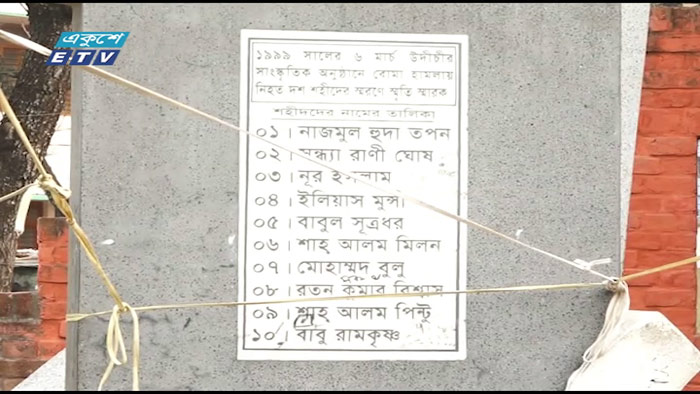 একুশে
ETV
১৯৯৯ সালের ৬ মার্চ উদীচীর
সাংস্কৃতিক অনুষ্ঠানে বোমা হামলায়
নিহত দশ শহীদের স্মরণে স্মৃতি স্মারক
শহীদদের নামের তালিকা
০১। নাজমুল হুদা তপন
০২। সন্ধ্যা রাণী ঘোষ
০৩। নূর ইসলাম
০৪। ইলিয়াস মুন্সী
০৫। বাবুল সূত্রধর
০৬। শাহ আলম মিলন
০৭। মোহাম্মদ বুলু
০৮। রতন কুমার বিশ্বাস
০৯। শাহ আলম পিন্টু
১০। বাবু রামকৃষ্ণ